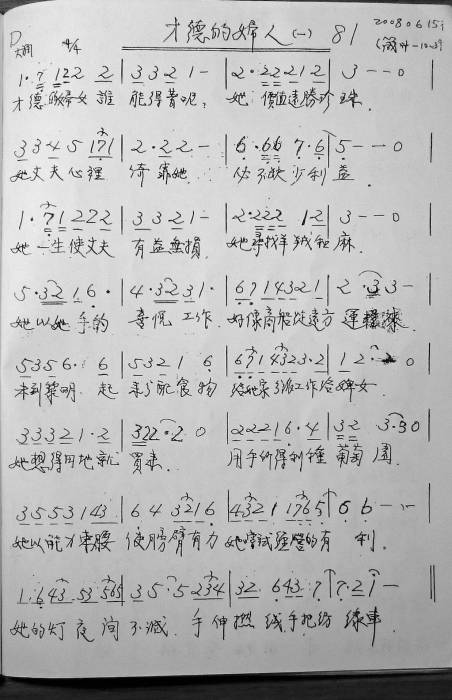 才德的婦人(一) 81
20080615
D 4/4 (箴31:10-29)
1·7 122 2 | 3 3 2 1 - | 2·2 2 2 1 2 | 3 - - 0 |
才德的婦女誰 能得著呢, 她價值遠勝珍珠.
3 3 4 5 1 7 1 | 2·2 2 - | 6·6 6 7·6 | 5 - - 0 |
她丈夫心裡 倚靠她. 必不缺少利益
1·7 1 2 2 2 | 3 3 2 1 - | 2·2 2 2 1 2 | 3 - - 0 |
她一生使丈夫 有益無損 她尋找羊羢和麻.
5·3 2 1 6· | 4·3 2 3 1· | 6 7 1 4 3 2 1 | 2·3 3 - |
她以她手的 喜悅工作. 好像商船從遠方運糧來
5 3 5 6· 6 | 5 3 2 1 6 | 6 7 1 4 3 2 3·2 | 1 2· 0 |
未到黎明 起來分配食物 給她家 派工作給婢女.
3 3 3 2 1·2 | 3 2 2·2 0 | 2 2 2 1 6·4 | 3 2 3·3 0 |
她想得田地就 買來. 用手所得利種葡萄園.
3 5 5 3 1 4 3 | 6 4 3 2 1 6 | 4 3 2 1 1 7 6 5 | 6 6 - - |
她以能力束腰 使膀臂有力 她嘗試經營的有利.
1·6 4 3 5 3 5 6 5 | 3 5·5 2 3 4 | 3 2 6 4 3·7 | 7·2 1 - ||
她的灯夜间不滅. 手伸撚线手把纺線車.